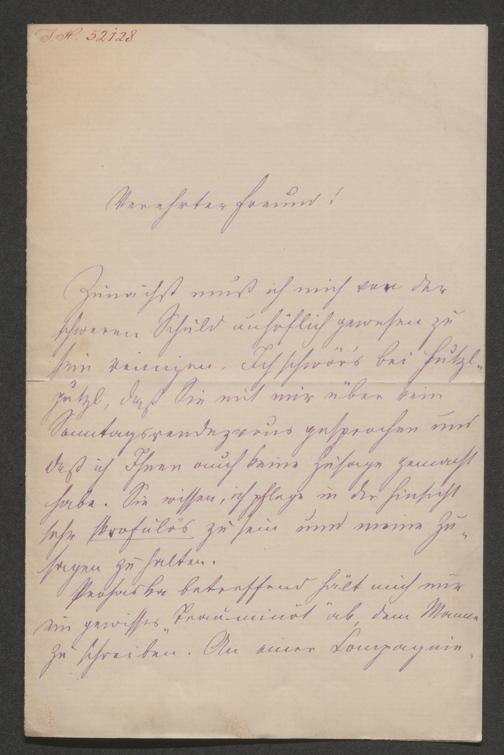 I. N. 52128
Verehrter Freund!
Zunächst muß ich mich von der
schweren Schuld unhöflich gewesen zu
sein reinigen. Ich schwör's bei Hutzl-
putzl, daß Sie mit mir über kein
Sonntagsrendezvous gesprochen und
daß ich Ihnen auch keine Zusage gemacht
habe. Sie wissen, ich pflege in der Hinsicht
sehr skrofulös zu sein und meine Zu-
sagen zu halten.
Prohaska betreffend hält mich nur
ein gewisses "Trau-mi-nöt" ab, dem Manne
zu schreiben. An einer Compagnie-